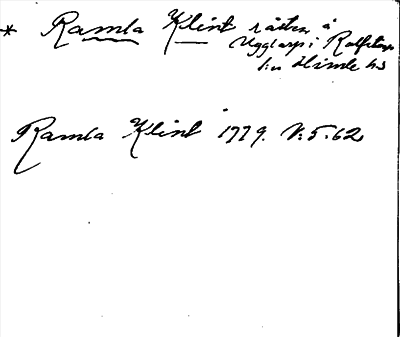 * Ramla Klint råsten å
Ugglarp i Rolfstorp
sn Himle hd
Ramla Klint 1779. V:5.62